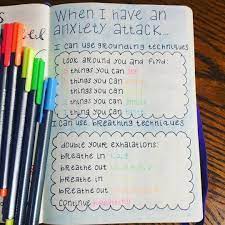 When I have
an
anxiety attack...
I can use grounding techniques
Look around you and find:
things you can see
things you can
things you can
things you can
thing you can
I can use breathing techniques
double your exhalations:
breathe in
breathe out
breathe in
breathe out
continue